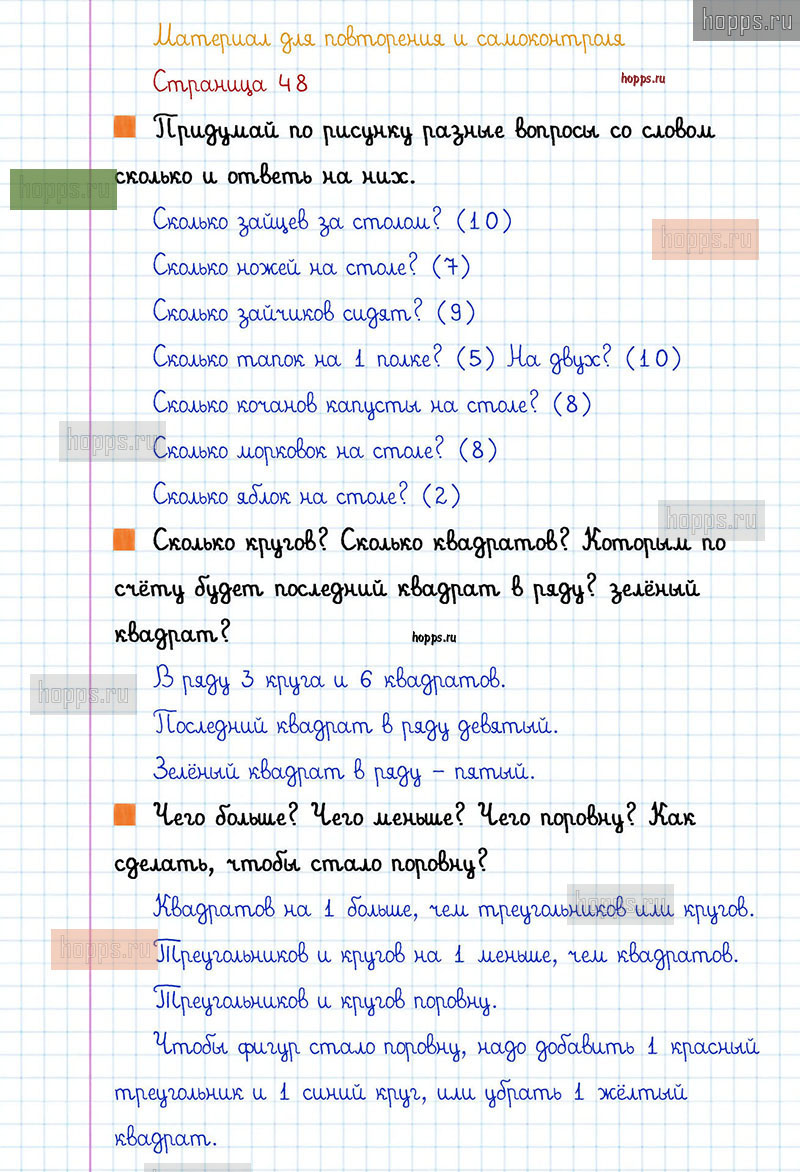 hopps.ru
Материал для повторения и самоконтроля
Страница 48
hopps.ru
Придумай по рисунку разные вопросы со словом
сколько и ответь на них.
hopps.ru
Сколько зайцев за столом? (10)
hopps.ru
Сколько ножей на столе? (7)
Сколько зайчиков сидят? (9)
Сколько тапок на 1 полке? (5) На двух? (10)
Сколько кочанов капусты на столе? (8)
hopps.ru
Сколько морковок на столе? (8)
Сколько яблок на столе? (2)
hopps.ru
Сколько кругов? Сколько квадратов? Которым по
счёту будет последний квадрат в ряду? зелёный
квадрат?
hopps.ru
В ряду 3 круга и 6 квадратов.
hopps.ru
Последний квадрат в ряду девятый.
Зелёный квадрат в ряду - пятый.
Чего больше? Чего меньше? Чего поровну? Как
сделать, чтобы стало поровну?
hopps.ru
Квадратов на 1 больше, чем треугольников или кругов.
hopps.ru
Треугольников и кругов на 1 меньше, чем квадратов.
Треугольников и кругов поровну.
Чтобы фигур стало поровну, надо добавить 1 красный
треугольник и 1 синий круг, или убрать 1 жёлтый
квадрат.